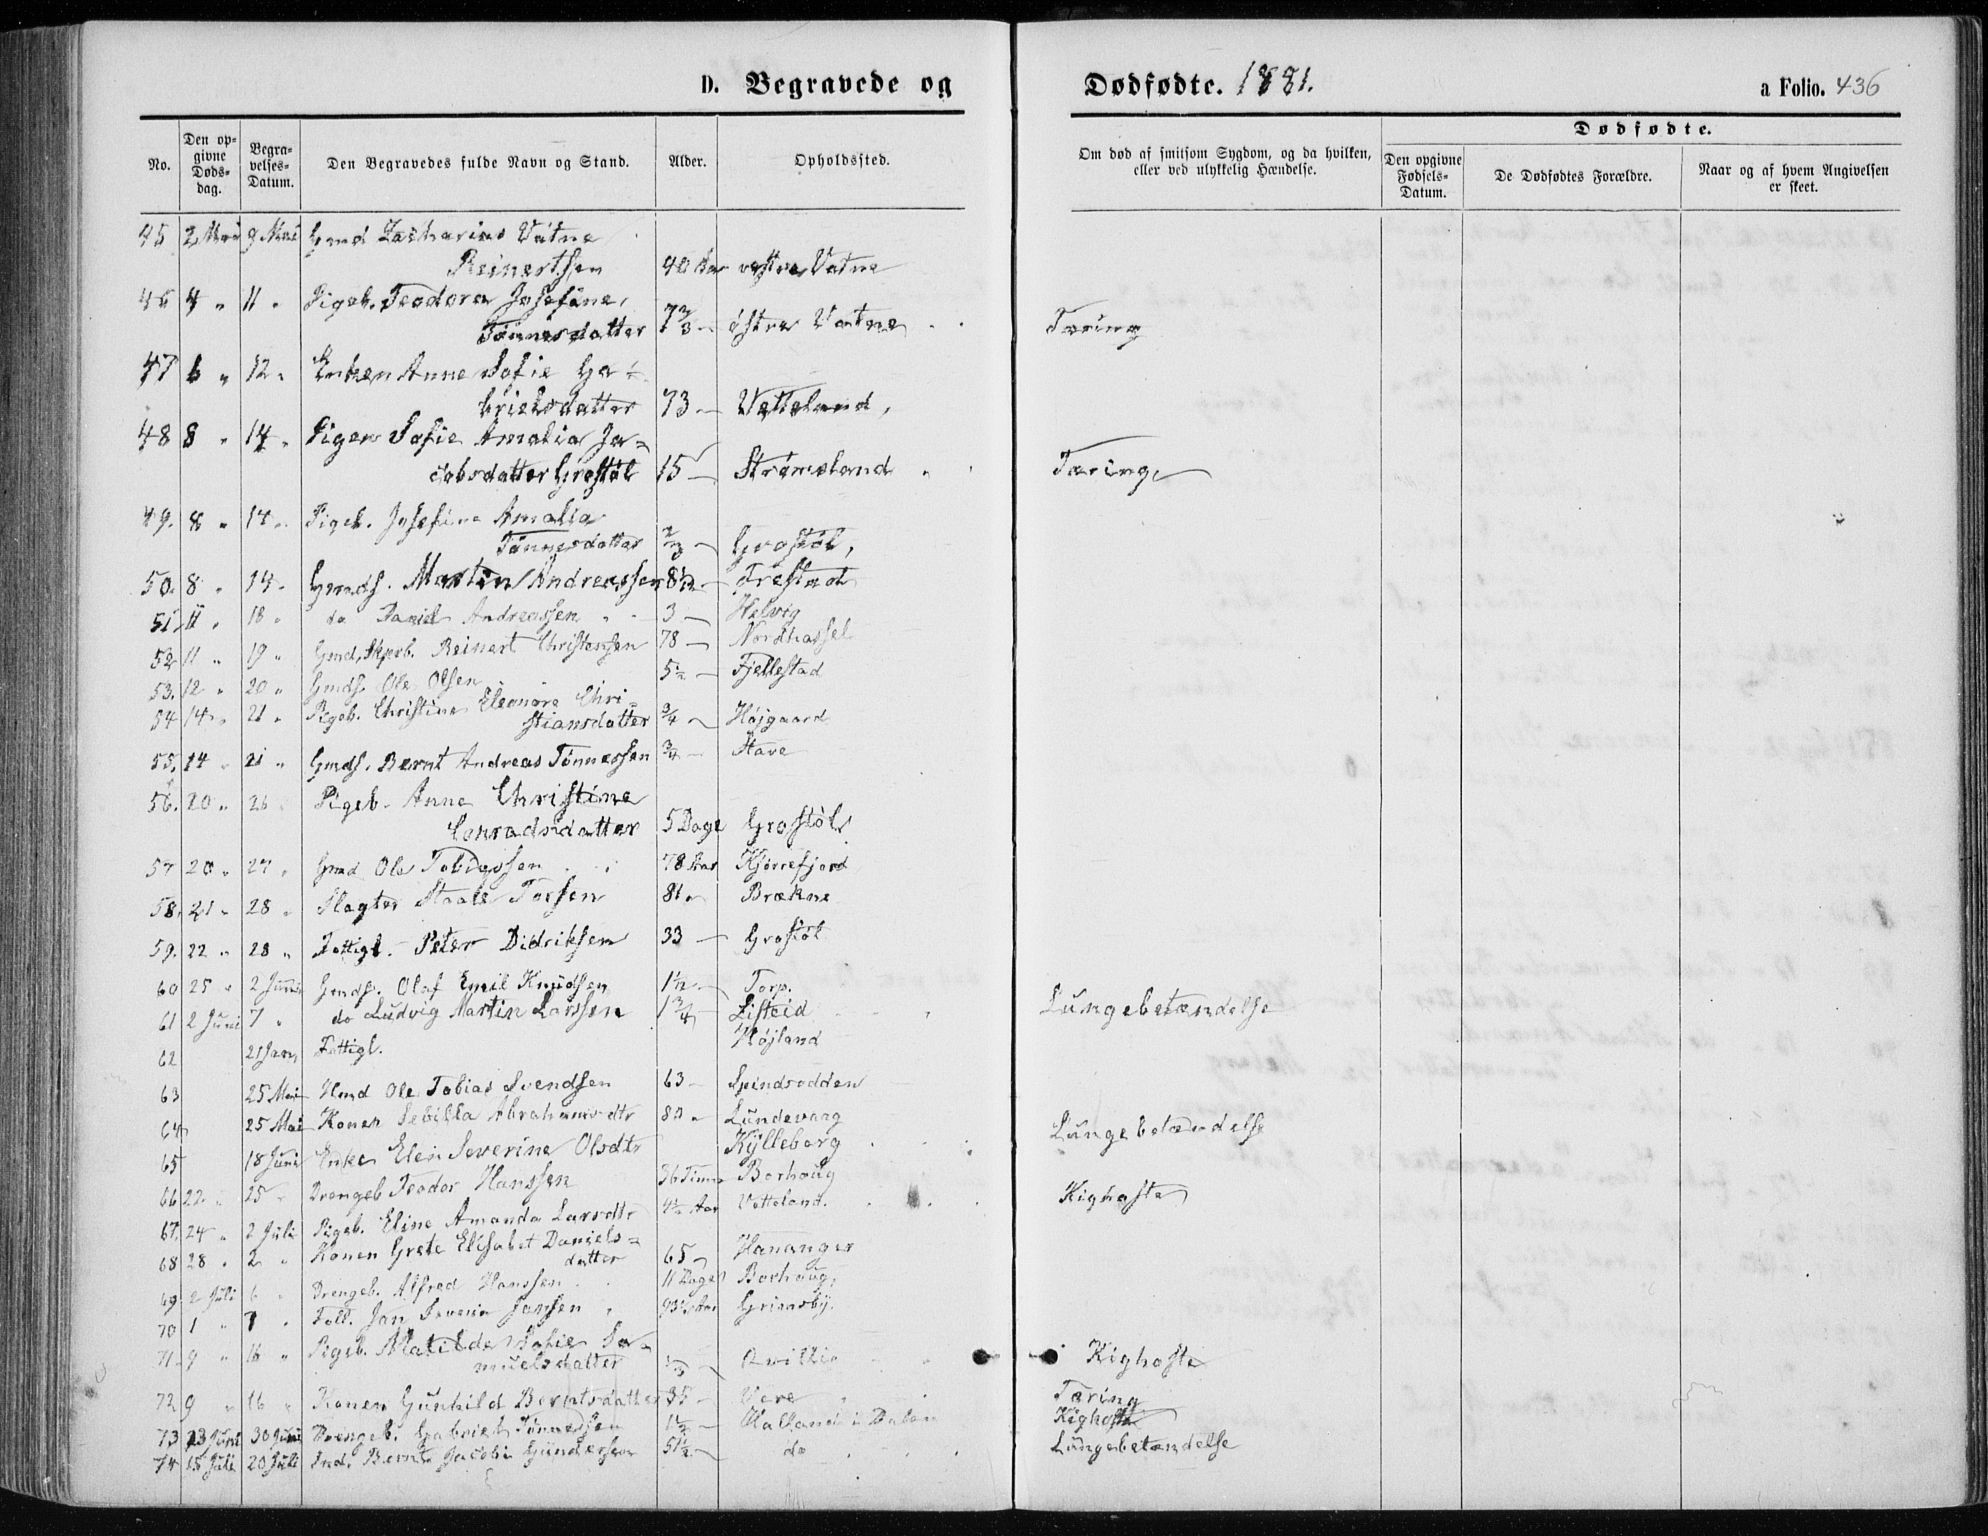 D. Begravede og Dødfødte. 1881. a Folio. 436
No. Den opgivne Dødsdag. Begravelses-Datum. Den Begravedes fulde Navn og Stand. Alder. Opholdssted. Om død af smitsom Sygdom, og da hvilken, eller ved ulykkelig Hændelse. Dødfødte. Den opgivne Fødsels-Datum. De Dødfødtes Forældre. Naar og af hvem Angivelsen er skeet.
45 2 Mai 9 Mai Gmd Zacharias Vatne
Reinertsen 40 Aar vestre Vatne
46 4 " 11 " Pigeb. Teodora Josefine,
Tønnesdatter 7 2/3 — østre Vatne Tæring
47 6 " 12 " Enken Anne Sofie Ga-
brielsdatter 73 — Vetteland,
48 8 " 14 " Pigen Sofie Amalia Ja-
cobsdatter Grostøl 15 — Strømsland Tæring
49. 8 " 14 " Pigeb. Josefine Amalia
Tønnesdatter 2/3 — Grostøl,
50. 8 " 14 " Gmds. Martin Andreassen 8 1/2 — Frestad
51 11 " 18 " do Daniel Andreassen 3 — Helvig
52 11 " 19 " Gmd, Skperb. Reinert Christensen 78 — Nordhassel
53. 12 " 20 " Gmds. Ole Olsen 5 1/2 — Fjellestad
54 14 " 21 " Pigeb. Christine Eleonore Chri-
stiansdatter 3/4 — Højgaard
55. 14 " 21 " Gmds. Bernt Andreas Tønnessen 3/4 — Stave
56. 20 " 26 " Pigeb. Anne Christine
Conradsdatter 5 Dage Grostøl
57 20 " 27 " Gmd Ole Tobiassen 78 Aar Kjørrefjord
58. 21 " 28 " Slagter Staale Torsen 81 " Brækne
59. 22 " 28 " Fattigl. Peter Didriksen 33 — Grostøl
60 25 " 2 Juni Gmds. Olaf Emil Knudsen 1 1/2 — Torp.
61 2 Juni 7 " do Ludvig Martin Larssen 1 3/4 — Listeid Lungebetændelse
62 21 Jan, Fattigl. Højland
63 25 Mai Hmd Ole Tobias Svendsen 63 — Spindsodden
64 25 Mai Konen Sebilla Abrahamsdtr 80 " Lundevaag Lungebetændelse
65 18 Juni Enke Elen Severine Olsdtr Kylleberg
66 22 " 25 " Drengeb Teodor Hanssen 36 Timer Borhoug
67. 24 " 2 Juli Pigeb. Eline Amanda Larsdtr 4 1/2 Aar Vetteland. Kighoste
68 28 " 2 " Konen Grete Elisabet Daniels-
datter 65 — Hananger
69 2 Juli 6 " Drengeb. Alfred Hanssen 11 Dage Borhoug,
70 1 " 7 " Jan Severin Jansen 93 1/2 Aar Grimsby.
71. 9 " 16 " Pigeb. Matilde Sofie Sa-
muelsdatter 1/3 Kighoste
72 9 " 16 " Konen Gunhild Berntsdatter 35 — Vere Tæring
73 23 Juni 30 Juni Drengeb. Gabriel Tønnessen 1 1/2 — Kalland i Dalen Kighoste
74 15 Juli 20 Juli Ind. Bernt Jacobi Gundersen 51 1/2 — do Lungebetændelse